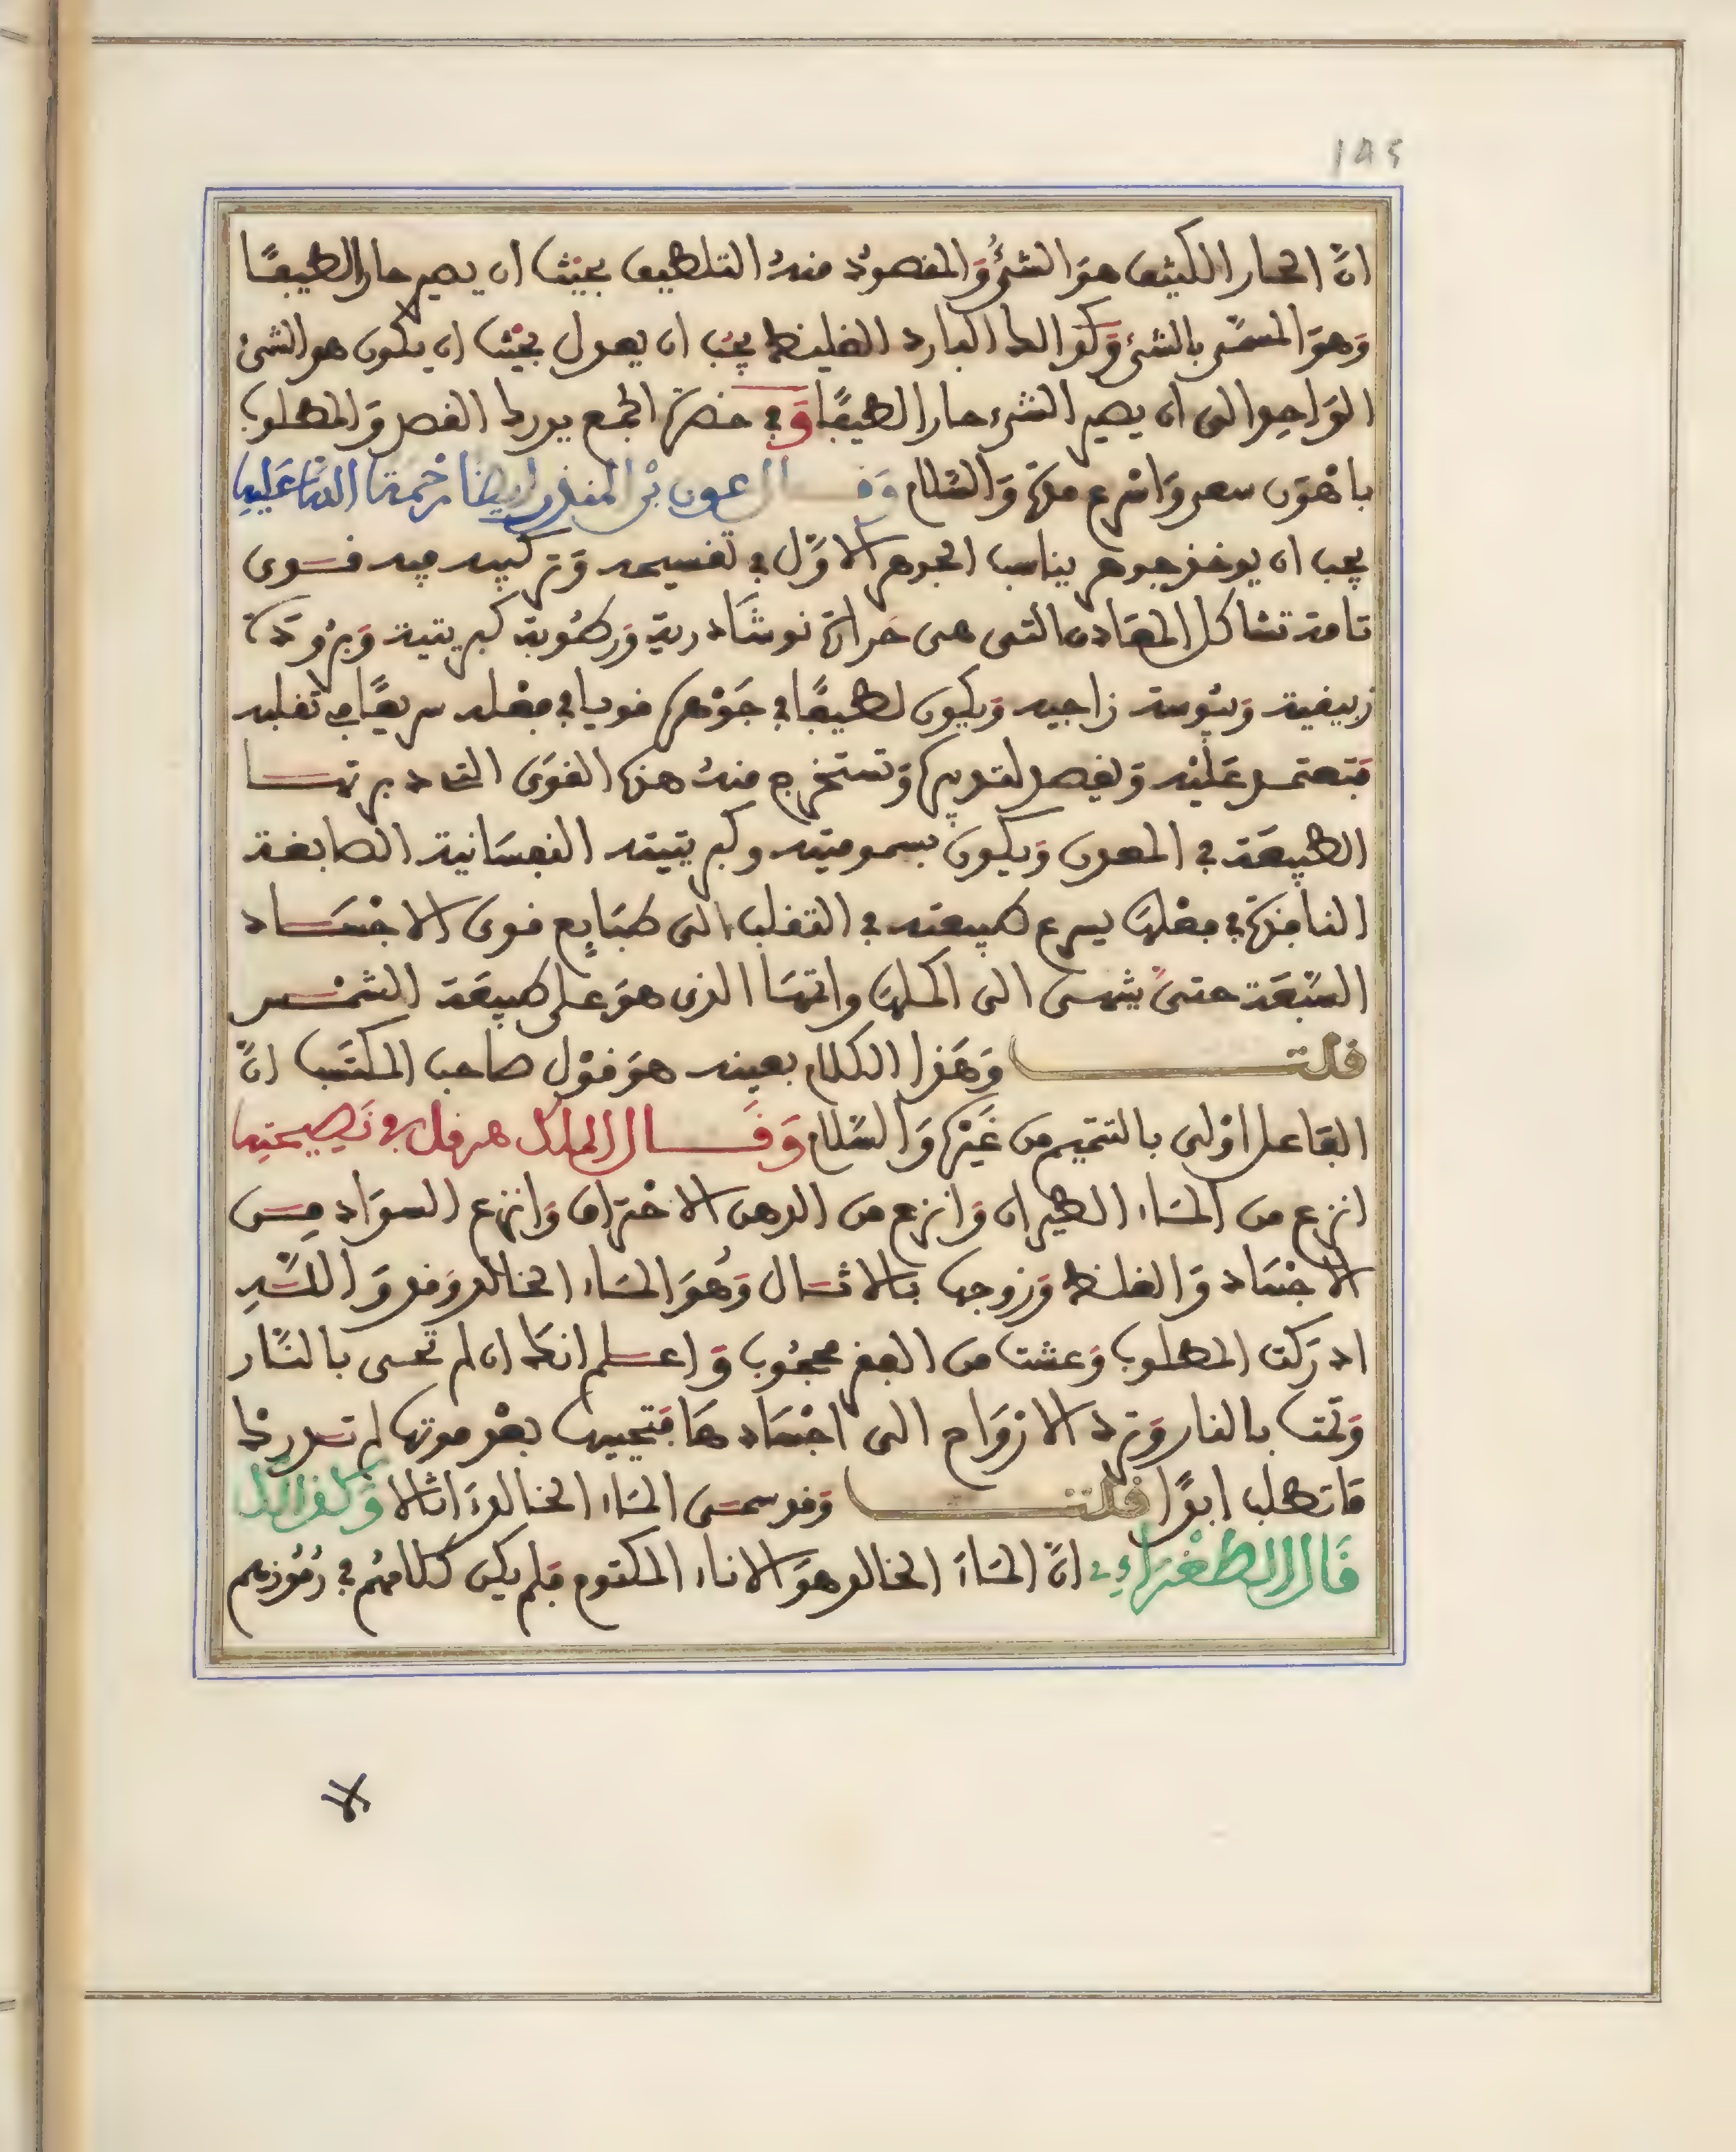 ١٨٥
انّ الحار الكثيف هوَ الشئُ وَالمقصودُ منهُ التلطيف بحيث ان يصير حارا لطيفًا
وَهوَ المسمّى بالشئ وَكذالك البارد الغليظ يجب ان يعدل بحيث ان يكون هو الشئ
الوَاحد الى ان يصير الشئ حارا لطيفًا وَفى حضرة الجمع يدرك القصد وَالمطلوب
باهْوَن سعى وَاسْرع مدة وَالسّلام وَقـــال عون بْن المنذر ايضا رَحْمَة اللّه عَليه
يجب ان يوخذ جوهر يناسب الجوهر الاوّل فى تقسيمه وَتركيبه فيه قــوى
تامة تشاكل المعَادن التى هى حَرارة نوشَادرية وَرطُوبة كبريتية وَبرُودَة
زيبقية وَيبُوسة زاجية وَيكون لطيفًا فى جَوْهره قويا فى فعْله سريعًا فى تقلبه
فتعتمد عَليْه وَتقصد لتدبيره وَتستخرج منهُ هذه القوَى التى دبرتهــا
الطبيعَة فى المعدن وَيكون بسموميته وكبريتيته النفسَانية الصابغة
النافذة فى فعْلها يسرع طبيعته فى التقلب الى طبَايع قوى الاجْسَــاد
السّبْعَة حتىَ ينتهى الى اكملهَا واتمهَا الذى هوَ على طبيعَة الشمْــس
قلتــــــ وَهَذا الكلام بعينه هوَ قوْل صاحب المكتَسب انّ
الفَاعل اوْلى بالتتميم من غَيْره وَالسّلام وَقَـــال الملك هرقل فى نَصِيحَتِه
انزع من المَاء الطيران وَانزع من الدهن الاحْترَاق وَانزع السوَاد مــن
الاجْسَاد وَالغلظ وَزوجها بالاثَـال وَهُوَ المَاء الخالد وَقد وَاللّــهِ
ادرَكت المطلوب وَعشت من الفقر محجُوب وَاعــلم انك ان لم تحيى بالنَّار
وَتمت بالنار وَترد الارْوَاح الى اجْسَادهَا فتحييها بعْد موتها لم تــدرك
مَا تطلب ابدًا قلتــــــ وَقد سمَــى المَاء الخالدَ اثالا وَكذالك
قَال الطغْرَاءِى انّ المَاءَ الخالد هوَ الاناء المكتوم فلم يكن كلامهُم فى رُمُوزهم
لا